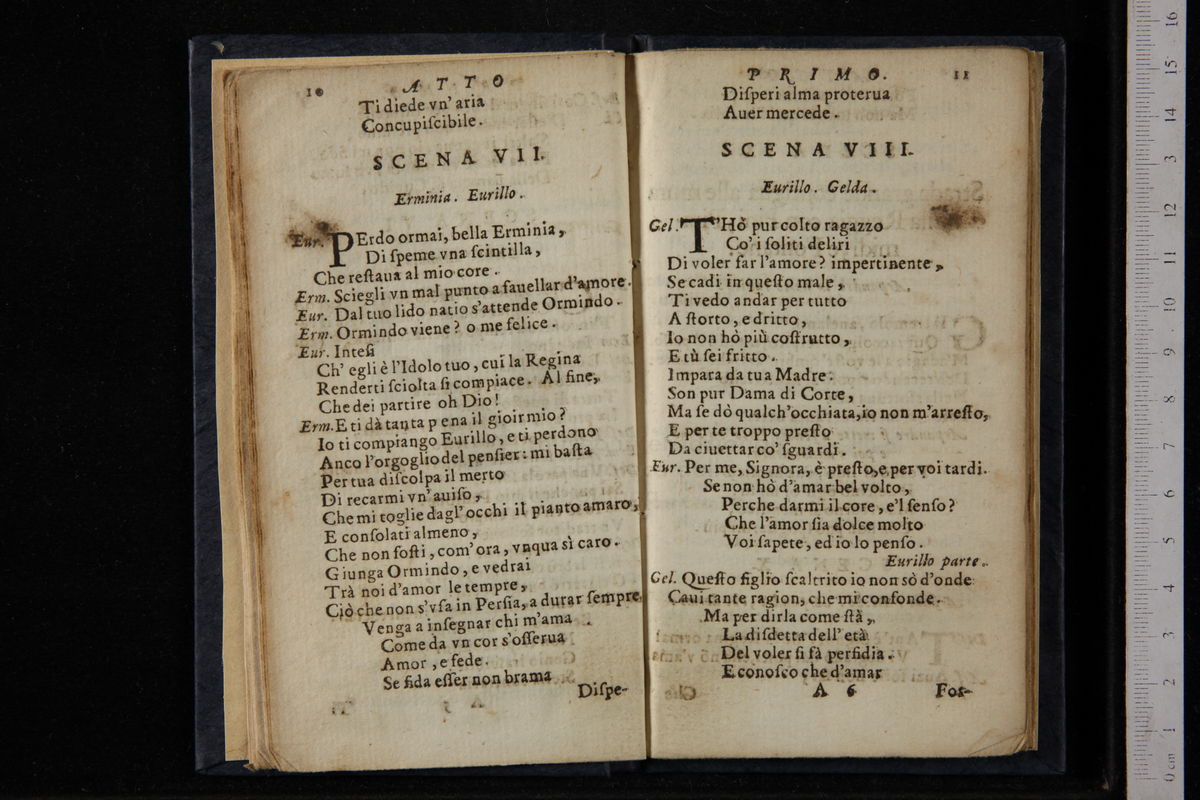 10 ATTO
Ti diede vn' aria
Concupiſcibile.
SCENA VII.
Erminia. Eurillo.
Eur. PErdo ormai, bella Erminia,
Di ſpeme vna ſcintilla,
Che reſtaua al mio core.
Erm. Sciegli vn mal punto a fauellar d'amore.
Eur. Dal tuo lido natio s'attende Ormindo.
Erm. Ormindo viene? o me felice.
Eur. Inteſi
Ch' egli è l'Idolo tuo, cui la Regina
Renderti ſciolta ſi compiace. Al fine,
Che dei partire oh Dio!
Erm. E ti dà tanta pena il gioir mio?
Io ti compiango Eurillo, e ti perdono
Anco l'orgoglio del penſier: mi baſta
Per tua diſcolpa il merto
Di recarmi vn' auiſo,
Che mi toglie dagl' occhi il pianto amaro,
E conſolati almeno,
Che non foſti, com' ora, vnqua sì caro.
Giunga Ormindo, e vedrai
Trà noi d'amor le tempre,
Ciò che non s'vſa in Perſia, a durar ſempre.
Venga a inſegnar chi m'ama
Come da vn cor s'oſſerua
Amor, e fede.
Se fida eſſer non brama
Diſpe-
PRIMO. 11
Diſperi alma proterua
Auer mercede.
SCENA VIII.
Eurillo. Gelda.
Gel. T'Hò pur colto ragazzo
Co' i ſoliti deliri
Di voler far l'amore? impertinente,
Se cadi in queſto male,
Ti vedo andar per tutto
A ſtorto, e dritto,
Io non hò più coſtrutto,
E tù ſei fritto.
Impara da tua Madre.
Son pur Dama di Corte,
Ma ſe dò qualch'occhiata, io non m'arreſto,
E per te troppo preſto
Da ciuettar co' ſguardi.
Eur. Per me, Signora, è preſto, e per voi tardi.
Se non hò d'amar bel volto,
Perche darmi il core, e'l ſenſo?
Che l'amor ſia dolce molto
Voi ſapete, ed io lo penſo.
Eurillo parte.
Gel. Queſto figlio ſcaltrito io non sò d'onde
Caui tante ragion, che mi confonde.
Ma per dirla come ſtà,
La diſdetta dell' età
Del voler ſi fà perfidia.
E conoſco che d'amar
A 6 For-